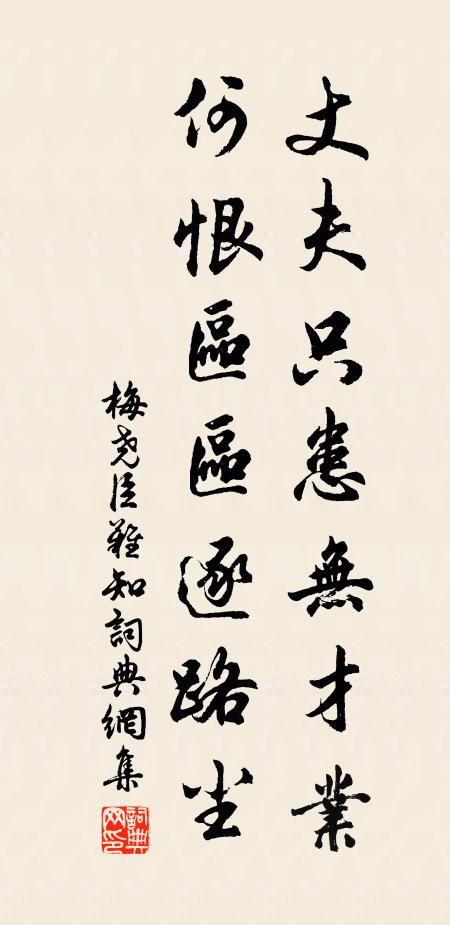 丈夫只患無才業
何恨區區逐路尘
梅尧臣難知詞典網集
詞典網印